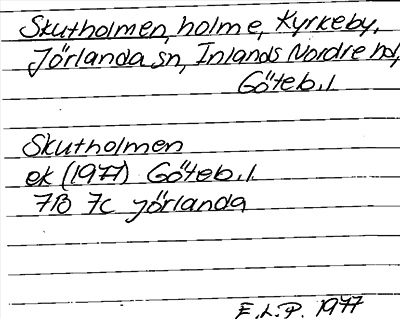 Skutholmen, holme, Kyrkeby,
Jörlanda sn, Inlands Nordre hd,
Göteb.l
Skutholmen
ek (1977) Göteb.l.
7B 7c Jörlanda
E.L.P. 1977